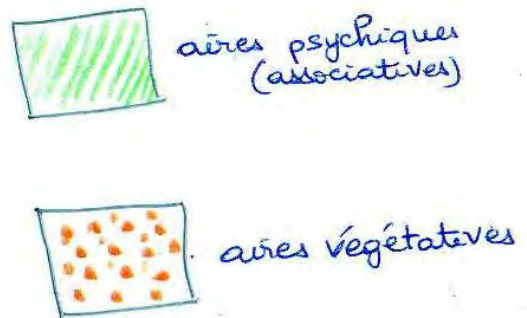 aires psychiques
(associatives)
aires végétatives